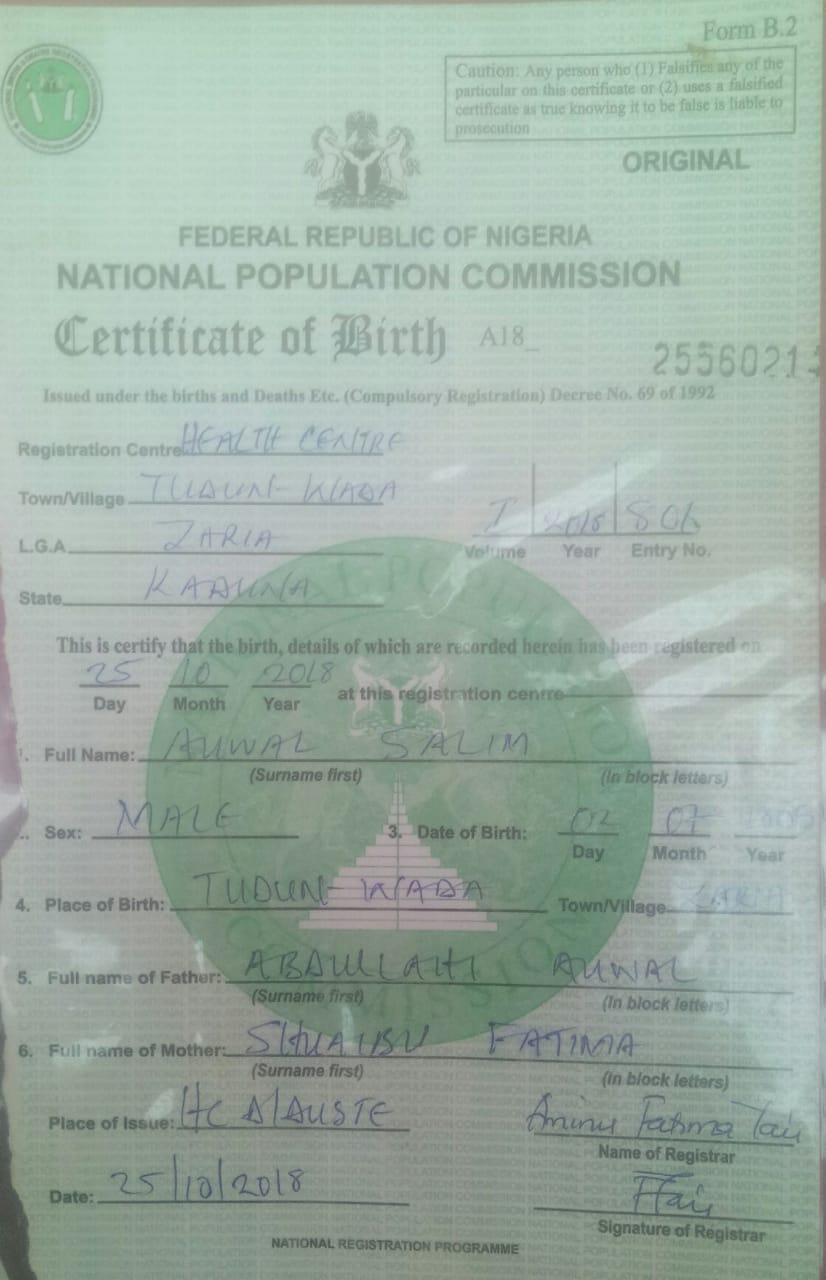 Form B.2
Caution: Any person who (1) Falsifies any of the
particular on this certificate or (2) uses a falsified
certificate as true knowing it to be false is liable to
prosecution
ORIGINAL
FEDERAL REPUBLIC OF NIGERIA
NATIONAL POPULATION COMMISSION
Certificate of Birth A18_
2556021
Issued under the births and Deaths Etc. (Compulsory Registration) Decree No. 69 of 1992
Registration Centre HEALTH CENTRE
Town/Village TUDUN-WADA
L.G.A. ZARIA
I 2018 806
Volume Year Entry No.
State KADUNA
This is certify that the birth, details of which are recorded herein has been registered on
25 10 2018 at this registration centre
Day Month Year
1. Full Name: AUWAL SALIM
(Surname first) (In block letters)
Sex: MALE 3. Date of Birth: 02 07
Day Month Year
4. Place of Birth: TUDUN-WADA Town/Village ZARIA
5. Full name of Father: ABDULLAHI AUWAL
(Surname first) (In block letters)
6. Full name of Mother: SHUAIBU FATIMA
(Surname first) (In block letters)
Place of Issue: HC Aminu Fatima
Name of Registrar
Date: 25/10/2018
Signature of Registrar
NATIONAL REGISTRATION PROGRAMME